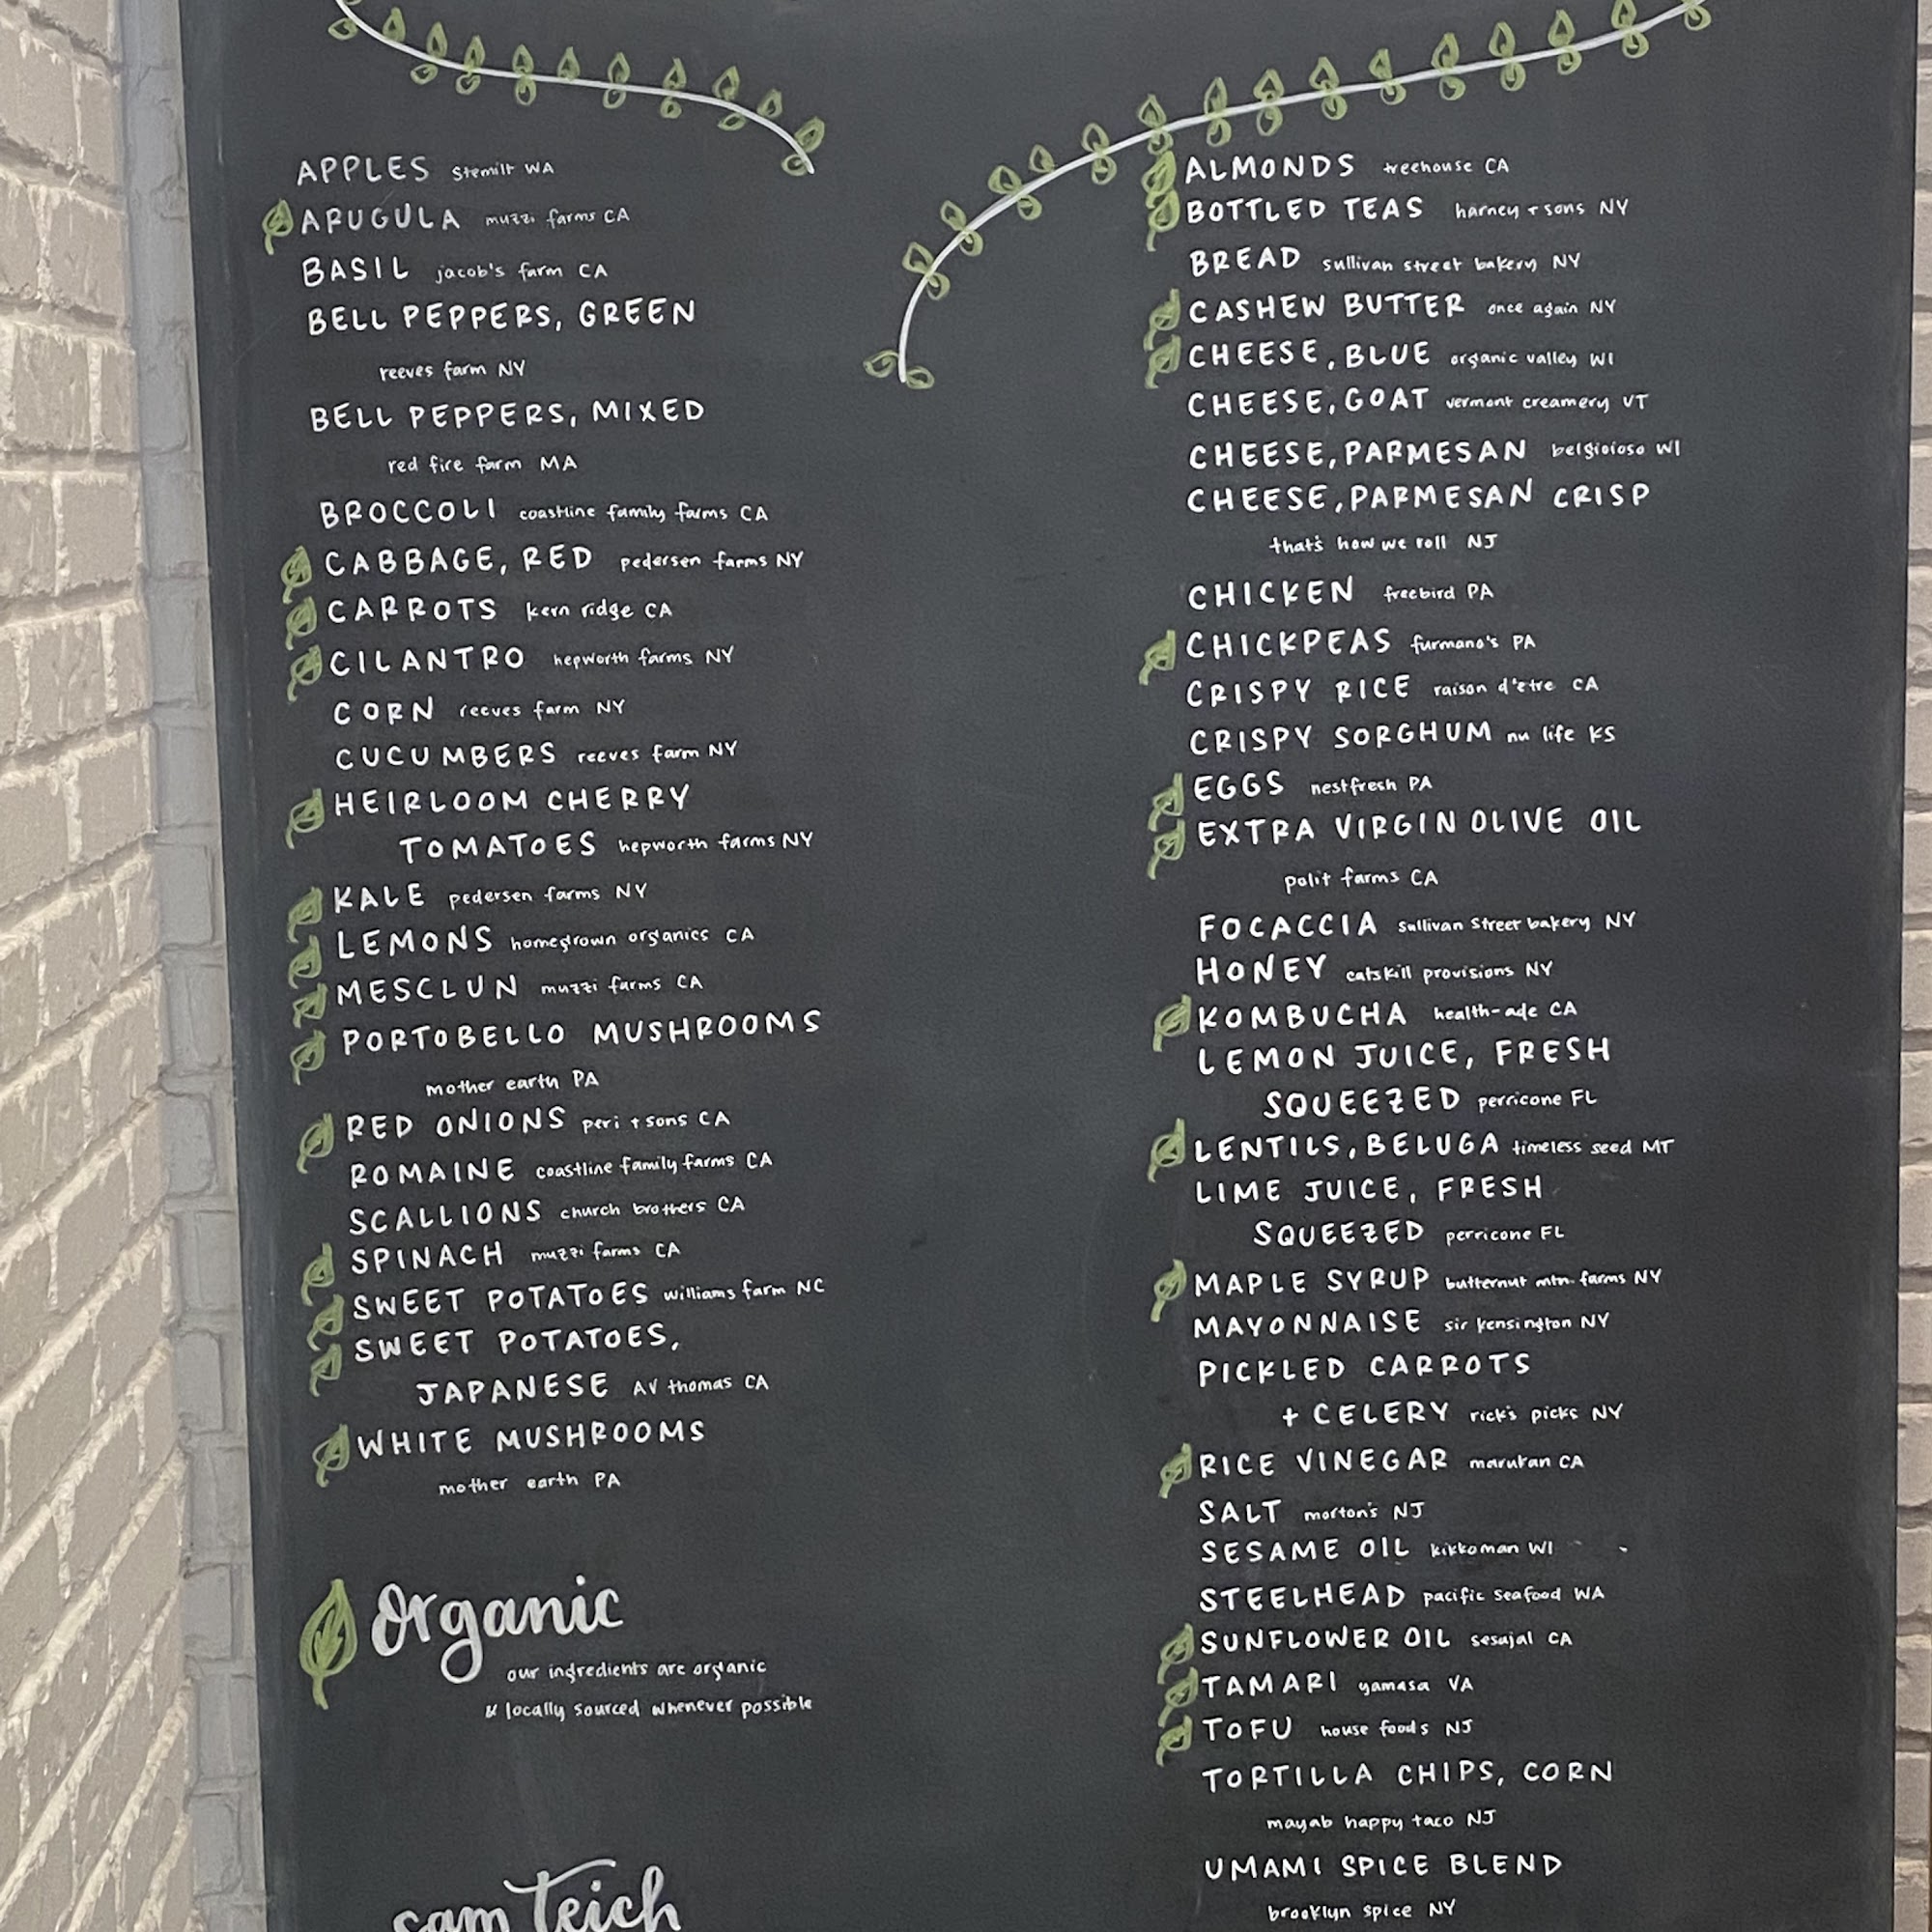 APPLES stemilt WA
ARUGULA muzzi farms CA
BASIL jacob's farm CA
BELL PEPPERS, GREEN
reeves farm NY
BELL PEPPERS, MIXED
red fire farm MA
BROCCOLI coastline family farms CA
CABBAGE, RED pedersen farms NY
CARROTS kern ridge CA
CILANTRO hepworth farms NY
CORN reeves farm NY
CUCUMBERS reeves farm NY
HEIRLOOM CHERRY
TOMATOES hepworth farms NY
KALE pedersen farms NY
LEMONS homegrown organics CA
MESCLUN muzzi farms CA
PORTOBELLO MUSHROOMS
mother earth PA
RED ONIONS peri + sons CA
ROMAINE coastline family farms CA
SCALLIONS church brothers CA
SPINACH muzzi farms CA
SWEET POTATOES williams farm NC
SWEET POTATOES,
JAPANESE AV thomas CA
WHITE MUSHROOMS
mother earth PA
organic
our ingredients are organic
& locally sourced whenever possible
sam Teich
ALMONDS treehouse CA
BOTTLED TEAS harney + sons NY
BREAD sullivan street bakery NY
CASHEW BUTTER once again NY
CHEESE, BLUE organic valley WI
CHEESE, GOAT vermont creamery VT
CHEESE, PARMESAN belgioioso WI
CHEESE, PARMESAN CRISP
that's how we roll NJ
CHICKEN freebird PA
CHICKPEAS furmano's PA
CRISPY RICE raison d'etre CA
CRISPY SORGHUM nu life KS
EGGS nestfresh PA
EXTRA VIRGIN OLIVE OIL
polit farms CA
FOCACCIA sullivan street bakery NY
HONEY catskill provisions NY
KOMBUCHA health-ade CA
LEMON JUICE, FRESH
SQUEEZED perricone FL
LENTILS, BELUGA timeless seed MT
LIME JUICE, FRESH
SQUEEZED perricone FL
MAPLE SYRUP butternut mtn. farms NY
MAYONNAISE sir kensington NY
PICKLED CARROTS
+ CELERY rick's picks NY
RICE VINEGAR marukan CA
SALT morton's NJ
SESAME OIL kikkoman WI
STEELHEAD pacific seafood WA
SUNFLOWER OIL sesajal CA
TAMARI yamasa VA
TOFU house foods NJ
TORTILLA CHIPS, CORN
mayab happy taco NJ
UMAMI SPICE BLEND
brooklyn spice NY